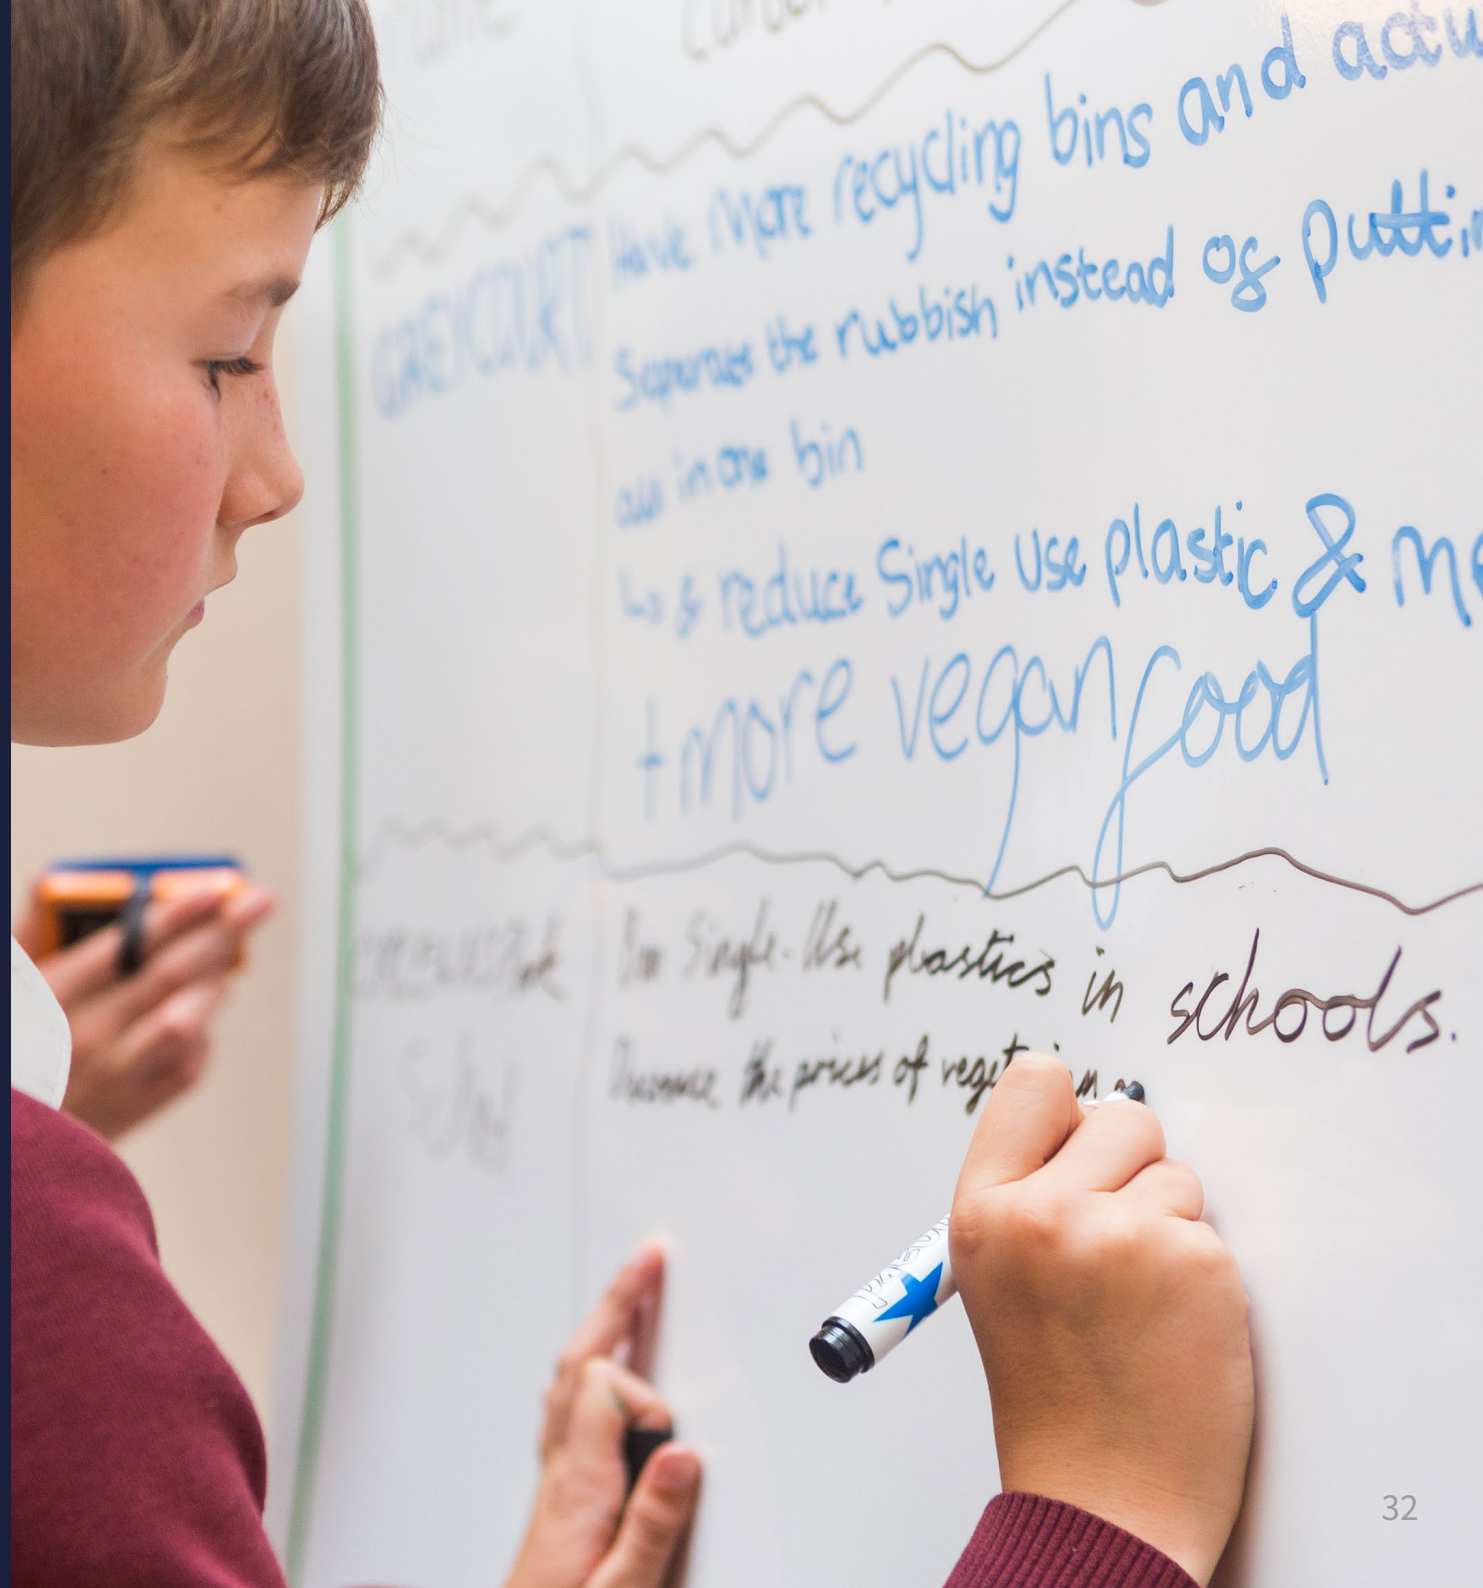 GREYCOURT
Have more recycling bins and actu
Seperate the rubbish instead of puttin
all in one bin
↳ & reduce Single Use plastic & me
+more vegan food
Single-Use plastics in schools.
the prices of
32